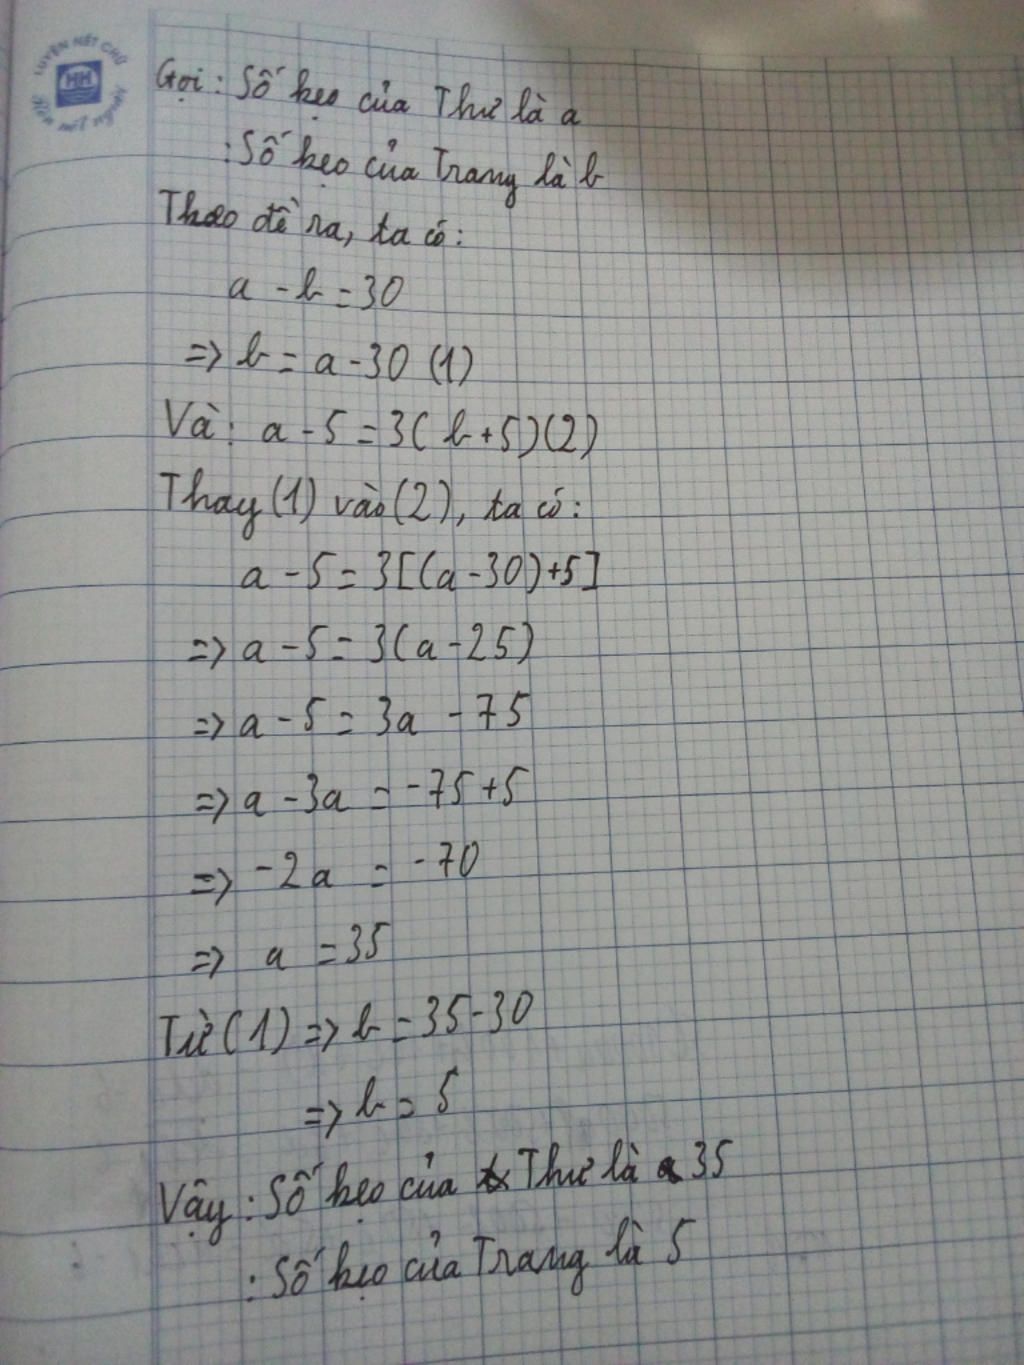 LUYỆN NÉT CHỮ
HH
Rèn nết người
Gọi: Số kẹo của Thư là a
: Số kẹo của Trang là b
Theo đề ra, ta có:
a - b = 30
=> b = a - 30 (1)
Và: a - 5 = 3( b + 5)(2)
Thay (1) vào (2), ta có:
a - 5 = 3[(a - 30) + 5]
=> a - 5 = 3(a - 25)
=> a - 5 = 3a - 75
=> a - 3a = -75 + 5
=> -2a = -70
=> a = 35
Từ (1) => b = 35 - 30
=> b = 5
Vậy: Số kẹo của Thư là 35
: Số kẹo của Trang là 5